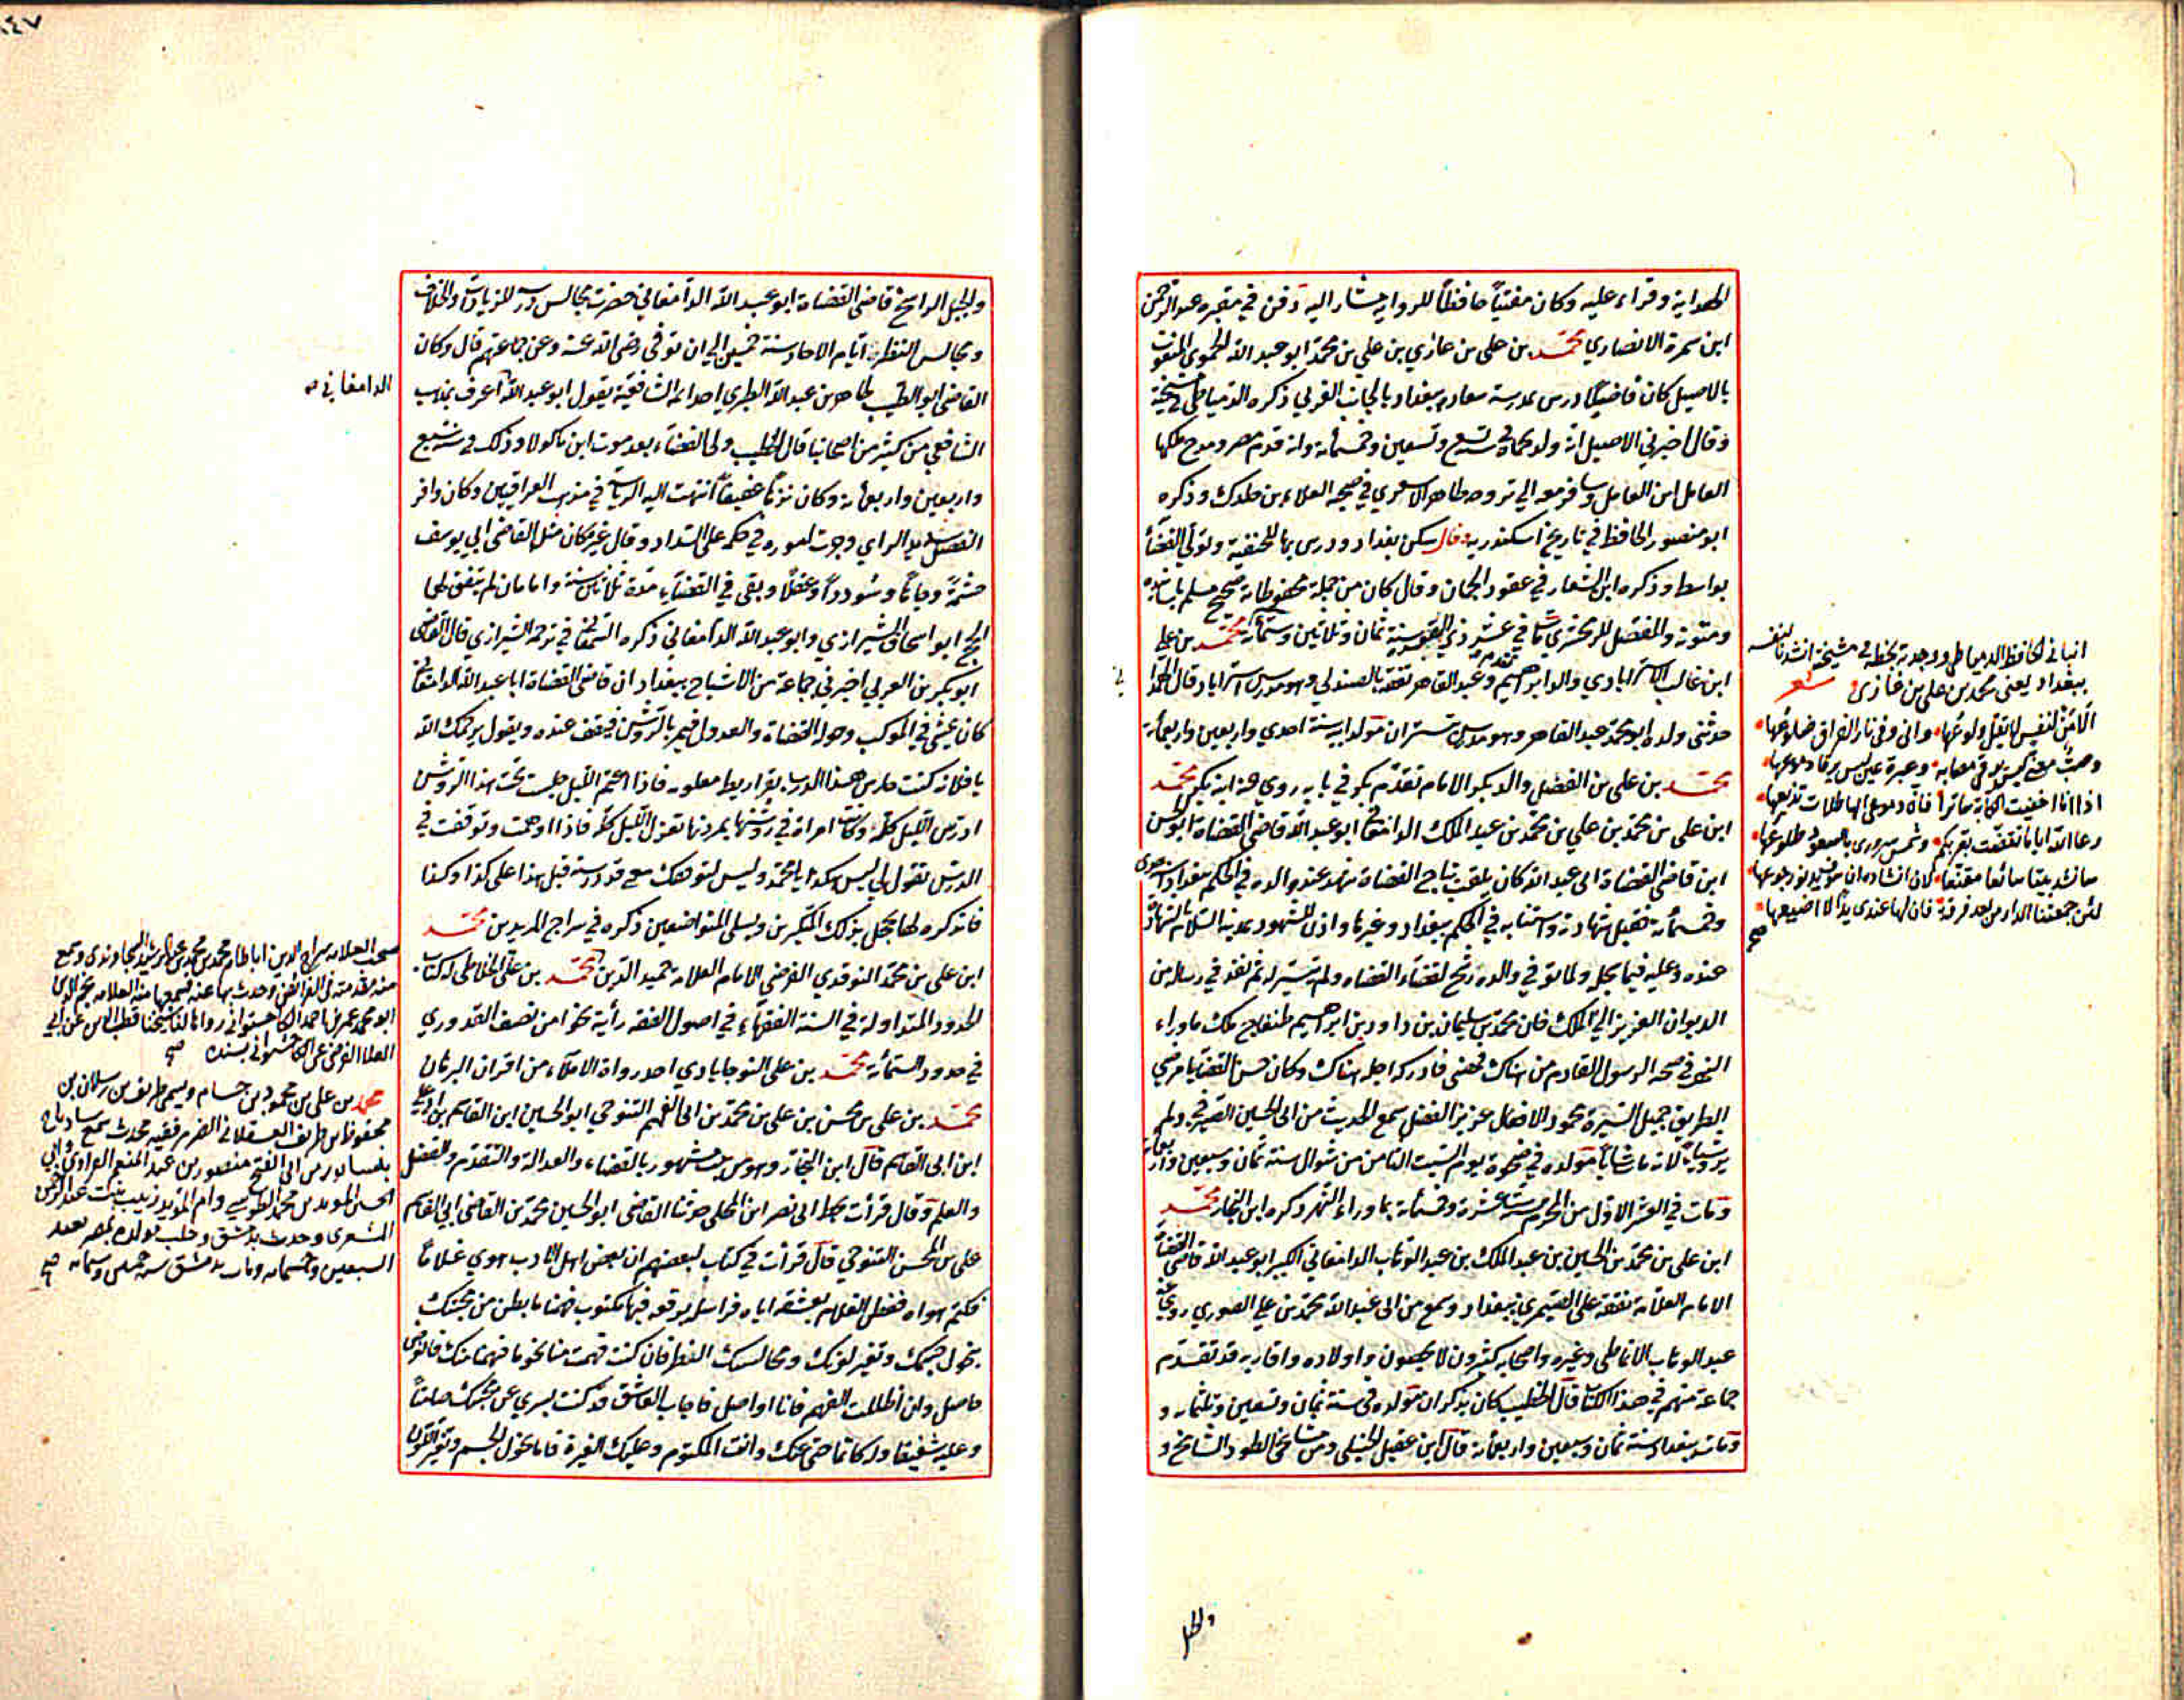 الهداية وقراء عليه وكان مفتياً حافظاً للرواية مشار اليه دفن في مقبرة عبد الرحمن
ابن سمرة الانصاري محمد بن علي بن غازي بن علي بن محمد ابو عبد الله الحموي المنعوت
بالاصيل كان قاضياً درس بمدرسة سعادة ببغداد بالجانب الغربي ذكره الدمياطي في مشيخته
وقال اخبرني الاصيل انه ولد بحماة سنة تسع وتسعين وخمسمائة وانه قدم مصر ومدح ملكها
الكامل ابن العادل وسافر معه الي
ابو منصور الحافظ في تاريخ اسكندرية فقال سكن بغداد ودرس بها للحنفية وتولي القضاء
بواسط وذكره ابن الشعار في عقود الجمان وقال كان من جملة محفوظاته صحيح مسلم باسانيده
ومتونه والمفصل للزمخشري مات في عشر ذي القعدة سنة ثمان وثلاثين وستمائة محمد بن علي
ابن غالب الاستراباذي والد ابراهيم وعبد القاهر تقدم تفقه بالصندلي وهو مدرس استراباد قال الهمداني
حدثني ولده ابو محمد عبد القاهر وهو مدرس تستر ان مولد ابيه سنة احدي واربعين واربعمائة
محمد بن علي بن الفضل والد بكر الامام تقدم بكر في بابه روي عنه ابنه بكر محمد
ابن علي بن محمد بن علي بن محمد بن عبد الملك الدامغاني ابو عبد الله قاضي القضاة ابو الحسن
ابن قاضي القضاة ابي عبد الله كان يلقب بتاج القضاة شهد عند والده في الحكم ببغداد سنة احدي
وخمسمائة فقبل شهادته واستنابه في الحكم ببغداد وغيرها واذن للشهود بمدينة السلام بالشهادة
عنده وعليه فيما يجله ولما توفي والده رشح لقضاء القضاة ولم يتيسر له ثم نفذ في رسالة من
الديوان العزيز الي الملك خان محمد بن سليمان بن داود بن ابراهيم طنفاج ملك ما وراء
النهر في صحبة الرسول القادم من هناك فمضي فادركه اجله هناك وكان حسن القضايا مرضي
الطريق جميل السيرة محمود الافعال عزيز الفضل سمع الحديث من ابي الحسين الصيرفي ولم
يرو شيئاً لانه مات شاباً مولده في ضحوة يوم السبت الثامن من شوال سنة ثمان وسبعين واربعمائة
ومات في العشر الاول من المحرم سنة ست عشرة وخمسمائة بما وراء النهر ذكره ابن النجار محمد
ابن علي بن محمد بن الحسين بن عبد الملك بن عبد الوهاب الدامغاني الكبير ابو عبد الله قاضي القضاة
الامام العلامة تفقه علي الصيمري ببغداد وسمع من ابي عبد الله محمد بن علي الصوري روي عنه
عبد الوهاب الانماطي وغيره واصحابه كثيرون لا يحصون واولاده واقاربه قد تقدم
جماعة منهم في هذا الكتاب قال الخطيب كان يذكر ان مولده في سنة ثمان وتسعين وثلثمائة و
ومات ببغداد سنة ثمان وسبعين واربعمائة قال ابن عقيل الحنبلي ومن مشايخي الطود الشامخ و
والجبل
انباني الحافظ الدمياطي ووجدته بخطه في مشيخته انشدنا لنفسه
ببغداد يعني محمد بن علي بن غازي شعر
الا من لنفس لا يقل ولوعها واني وفي نار الفراق ضلوعها
وصب معنى ليس يرقى مصابه وعبرة عين ليس يرقا دموعها
اذا انا اخفيت الكآبة ساترا فان دموعي الهاطلات تذيعها
رعا الله اياما تقضت بقربكم وشمس سروري بالسعود طلوعها
لئن جمعتنا الدار من بعد فرقة فان لها عندي يدا لا اضيعها
صح
والجبل الراسخ قاضي القضاة ابو عبد الله الدامغاني حضرت مجالس درسه للزيادات والخلاف
ومجالس النظر ايام الاحاد سنة خمسين الي ان توفي رضي الله عنه وعن جماعتهم قال وكان
القاضي ابو الطيب طاهر بن عبد الله الطبري احد ائمة الشافعية يقول ابو عبد الله اعرف بمذهب
الدامغاني صح
الشافعي من كثير من اصحابنا قال الخطيب ولي القضاء بعد موت ابن ماكولا وذلك في سنة سبع
واربعين واربعمائة وكان نزهاً عفيفاً انتهت اليه الرياسة في مذهب العراقيين وكان وافر
الفضل سديد الراي وجرت اموره في حكمه علي السداد وقال غيره كان مثل القاضي ابي يوسف
حشمةً وجاهاً وسُودداً وعقلاً وبقي في القضاء مدة ثلاثين سنة وامامان لم يتفق لهما
الحج ابو اسحاق الشيرازي وابو عبد الله الدامغاني ذكره السمعاني في ترجمة الشيرازي قال القاضي
ابو بكر بن العربي اخبرني جماعة من الاشياخ ببغداد ان قاضي القضاة ابا عبد الله الدامغاني
كان يمشي في الموكب وحوله القضاة والعدول فيمر بالروشن فيقف عنده ويقول يرحمك الله
يا فلانة كنت حارس هذا الدرب بقراريط معلومة فاذا اعتم الليل جلست تحت هذا الروشن
ادرس الليل كله وكانت امراة في روشنها بمردنها تغزل الليل كله فاذا اوهمت وتوقفت في
الدرس تقول لي ليس هكذا يا محمد وليس لتوقفك معنى قد درسته قبل هذا علي كذا وكذا
فاتذكره لها يخجل بذلك المتكبرين ويسلي المتواضعين ذكره في سراج المريدين محمد
ابن علي بن محمد النوقدي الفرضي الامام العلامة حميد الدين محمد بن علي الخلاطي له كتاب
الحدود المتداولة في السنة الفقهاء في اصول الفقه رأيته نحوا من نصف القدوري
في حدود الستمائة محمد بن علي النوجاباذي احد رواة الامالآء من اقران البرهان
محمد بن علي بن محسن بن علي بن محمد بن ابي الفهم التنوخي ابو الحسين ابن القاسم بن ابي علي
ابن ابي القاسم قال ابن النجار وهو من بيت مشهور بالقضاء والعدالة والتقدم والفضل
والعلم وقال قرأت بخط ابي نصر ابن المجلي حدثنا القاضي ابو الحسين محمد بن القاضي ابي القاسم
علي بن المحسن التنوخي قال قرأت في كتاب لبعضهم ان بعض اهل الادب هوي غلاماً
فكتم هواه ففطن الغلام بعشقه اياه فراسله برقعة فيها مكتوب فهمنا ما بطن من محبتك
بنحول جسمك وتغير لونك ومخالستك النظر فان كنت فهمت منا نحو ما فهمنا منك فالرضي
حاصل وان اطللت الفهم فانا اواصل فاجاب العاشق
وعليه شفيقا
صحب العلامة سراج الدين ابا طاهر محمد بن محمد بن عبد الرشيد السجاوندي وسمع
منه مقدمته في الفرائض وحدث بها عنه فسمعها منه العلامة نجم الدين
ابو محمد عمر بن احمد الكاخشتواني رواها لنا شيخنا قطب الدين عن ابي
العلا الفرضي عن الكاخشتواني بسنده صح
محمد بن علي بن محمود بن حسام ويسمى طريف بن رسلان بن
محفوظ بن طريف العسقلاني الضرير فقيه محدث سمع
بنيسابور من ابي الفتح منصور بن عبد المنعم الفراوي وابي
الحسن المويد بن محمد الطوسي وام المويد زينب بنت عبد الرحمن
الشعري وحدث بدمشق وحلب مولده بمصر بعد
السبعين وخمسمائة ومات بدمشق سنة خمسين وستمائة صح